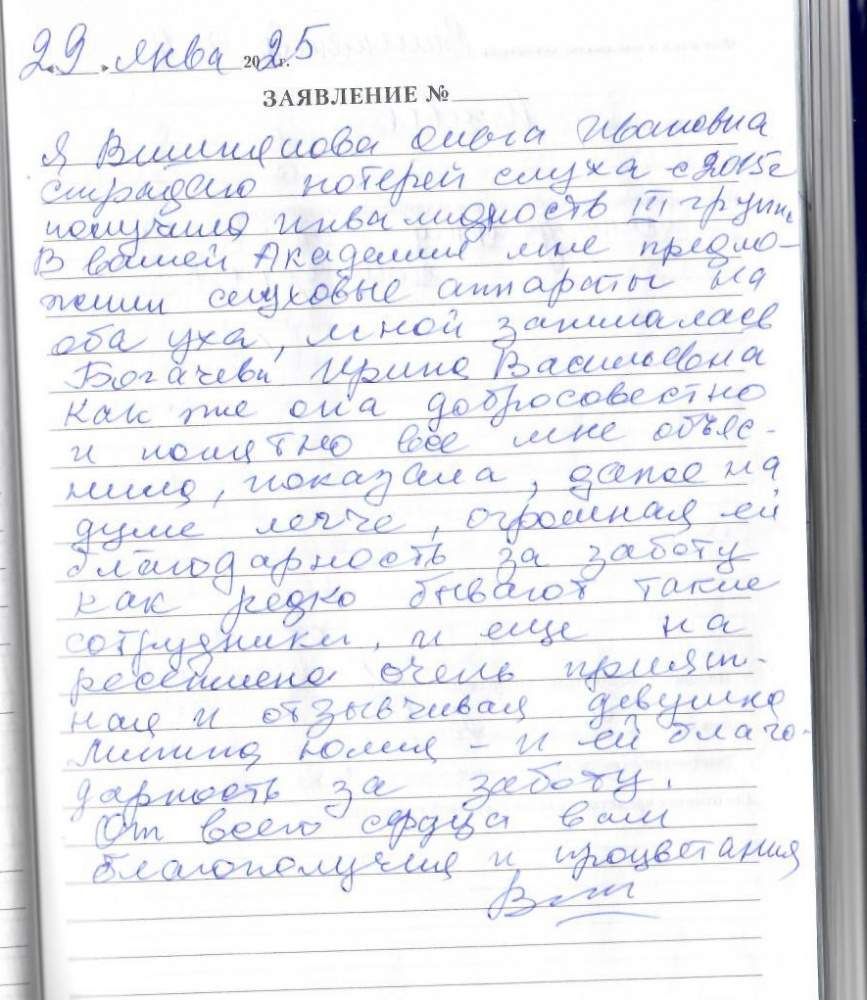 «29» янва 2025 г.
ЗАЯВЛЕНИЕ №
Я Ольга Ивановна
страдаю потерей слуха с 2015г
получила инвалидность III групп.
В вашей Академии мне предло-
жили слуховые аппараты на
оба уха, мной занималась
Богачева Ирина Васильевна
как же она добросовестно
и понятно все мне объяс-
нила, показала, даже на
душе легче, огромная ей
благодарность за заботу
как редко бывают такие
сотрудники, и еще на
ресепшене очень прият-
ная и отзывчивая девушка
Юлия - и ей благо-
дарность за заботу.
От всего сердца вам
благополучия и процветания